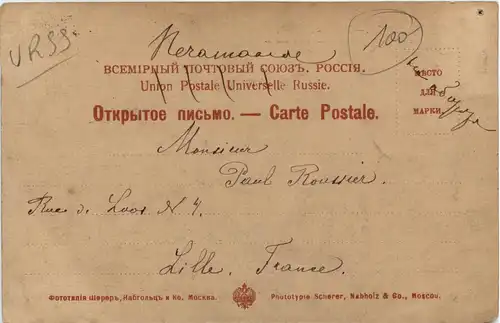 URSS.
100
ВСЕМІРНЫЙ ПОЧТОВЫЙ СОЮЗЪ. РОССІЯ.
Union Postale Universelle Russie.
МѢСТО
ДЛЯ
МАРКИ
Открытое письмо. — Carte Postale.
Monsieur
Paul Roussier,
Rue de Loos N 7.
Lille, France.
Фототипія Шереръ, Набгольцъ и Ко. Москва.
Phototypie Scherer, Nabholz & Co., Moscou.